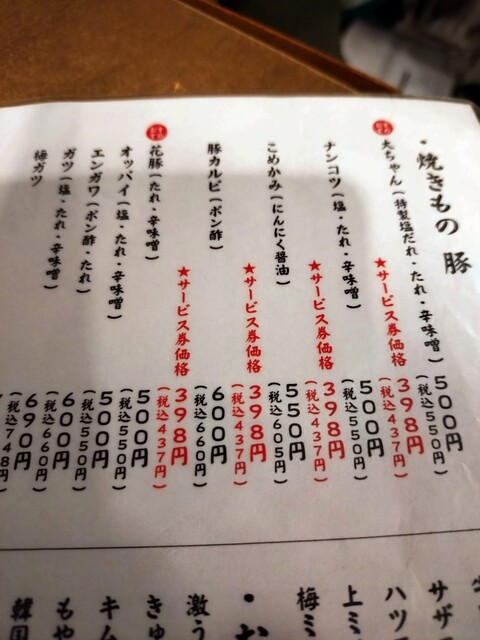 ・焼きもの 豚
大ちゃん(特製塩だれ・たれ・辛味噌) 500円
(税込550円)
★サービス券価格 398円
(税込437円)
ナンコツ(塩・たれ・辛味噌) 500円
(税込550円)
★サービス券価格 398円
(税込437円)
こめかみ(にんにく醤油) 550円
(税込605円)
★サービス券価格 398円
(税込437円)
豚カルビ(ポン酢) 600円
(税込660円)
★サービス券価格 398円
(税込437円)
花豚(たれ・辛味噌) 500円
(税込550円)
オッパイ(塩・たれ・辛味噌) 500円
(税込550円)
エンガワ(ポン酢・たれ) 600円
(税込660円)
ガツ(塩・たれ・辛味噌) 690円
(税込748円)
梅ガツ
サザ
ハツ
上ミ
梅ミ
激う
きゅ
キム
もや
韓国